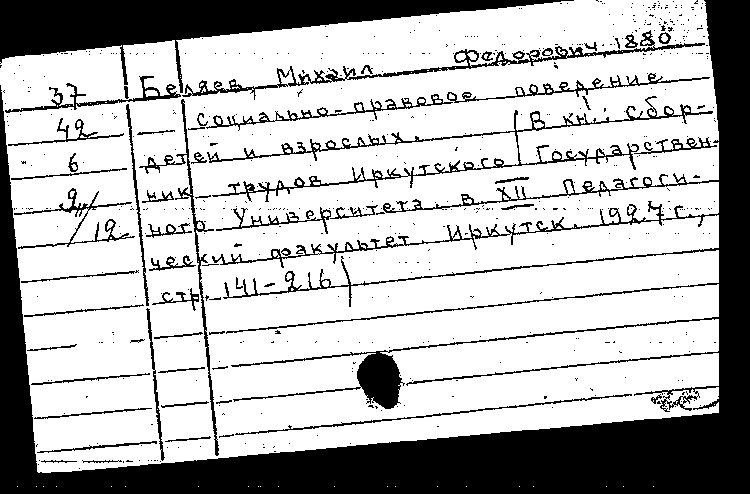 37 Беляев, Михаил Федорович, 1880
42 Социально-правовое поведение
6 детей и взрослых. (В кн.: Сбор-
ник трудов Иркутского Государствен-
12 ного Университета. в XII. Педагоги-
ческий факультет. Иркутск. 1927 г.,
стр. 141-216)